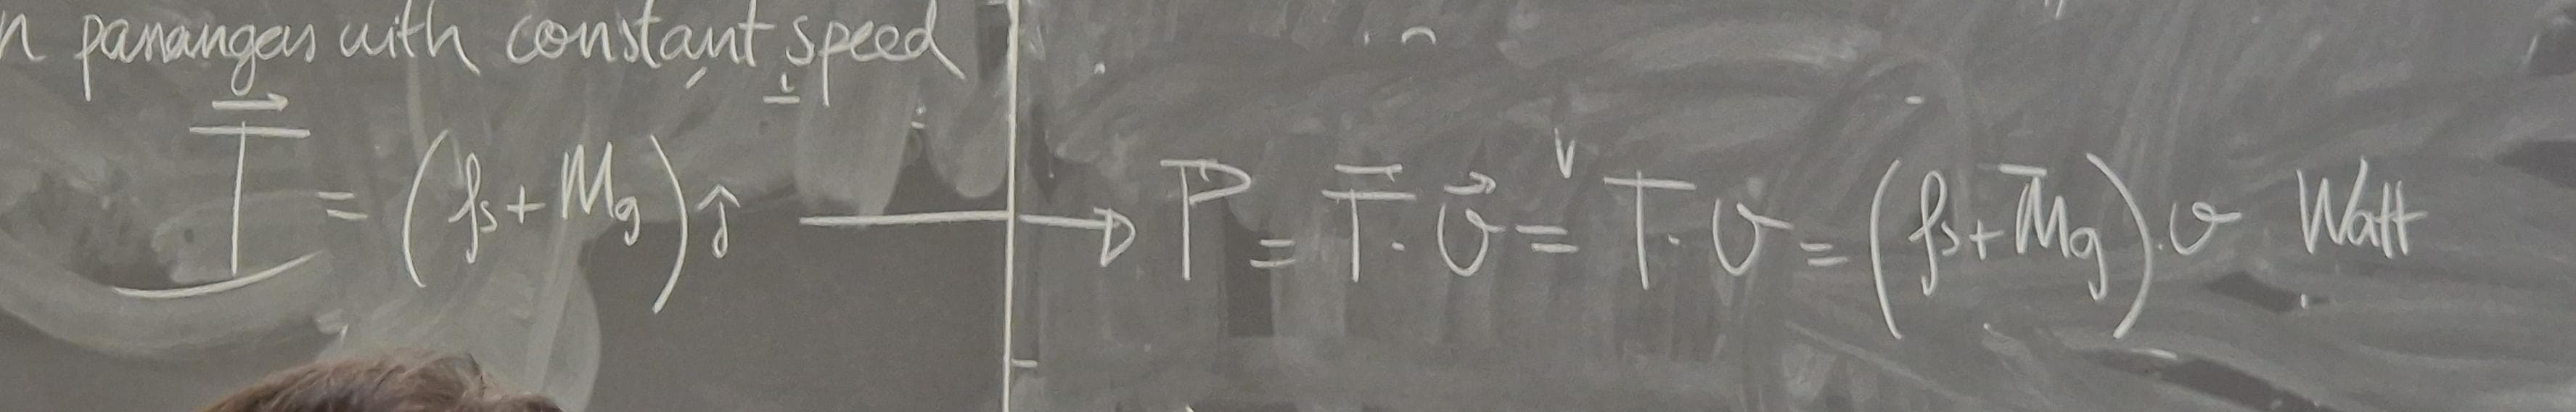 n passangers with constant speed
T⃗ = (fs + Mg) ĵ → P = T⃗ · v⃗ = T · v = (fs + Mg) · v Watt